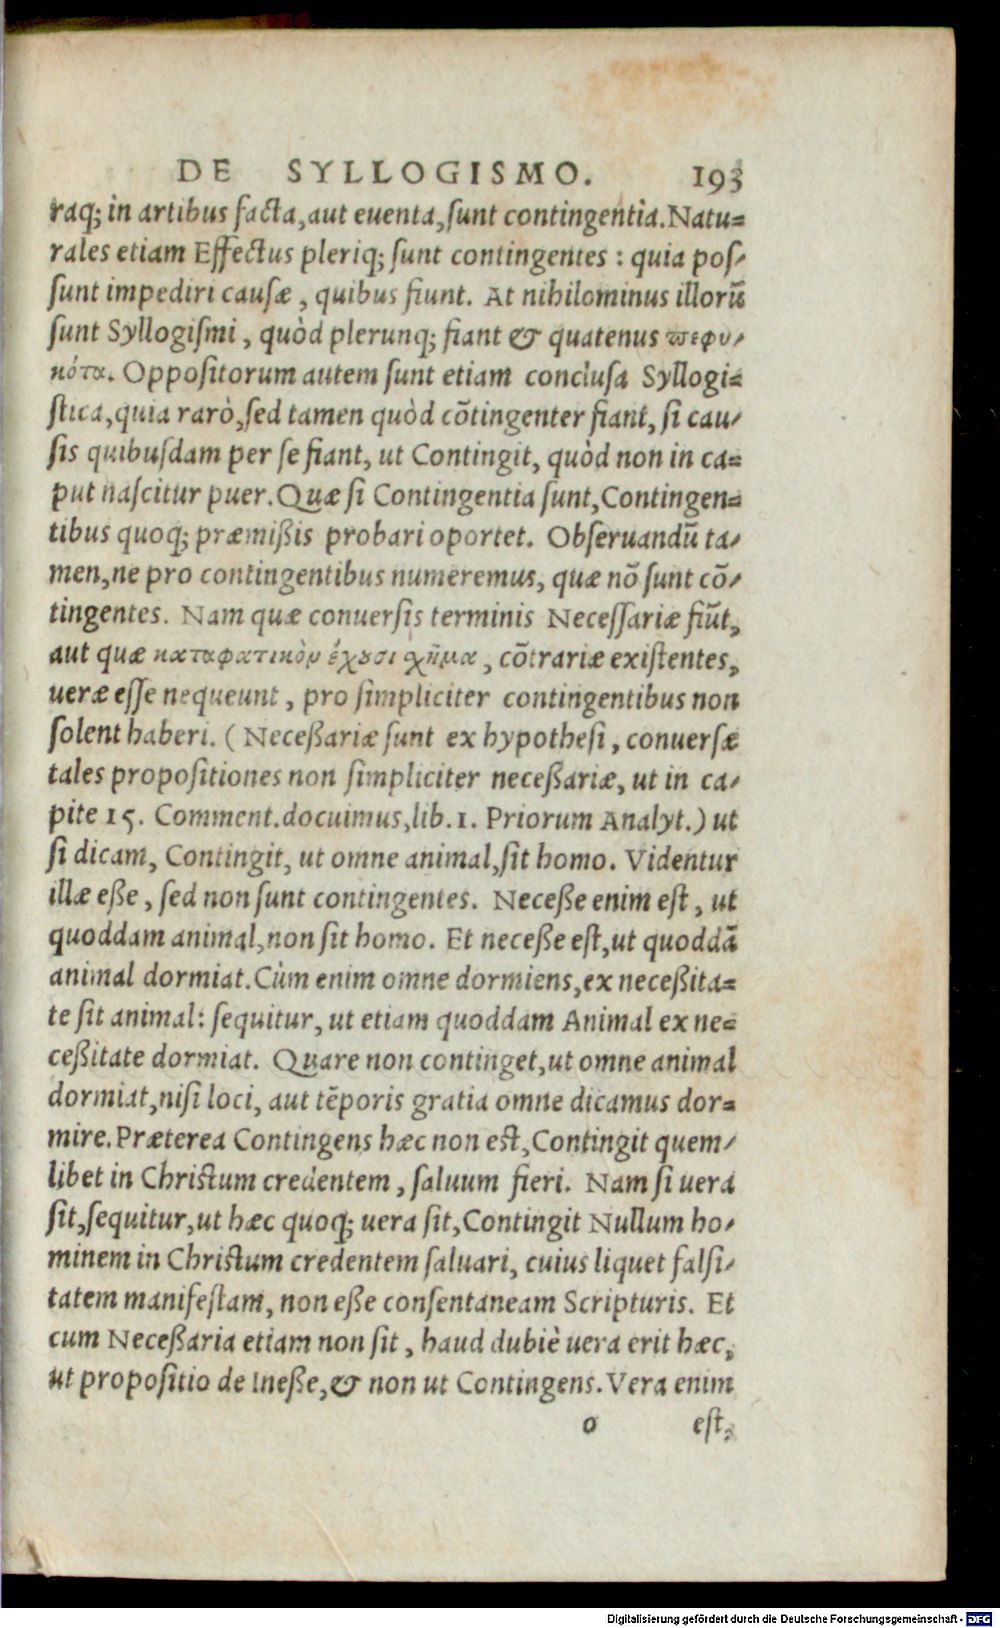 DE SYLLOGISMO. 193
raq; in artibus facta, aut euenta, sunt contingentia. Natu-
rales etiam Effectus pleriq; sunt contingentes : quia pos-
sunt impediri causæ, quibus fiunt. At nihilominus illorū
sunt Syllogismi, quòd plerunq; fiant & quatenus πεφυ-
κότα. Oppositorum autem sunt etiam conclusa Syllogi-
stica, quia rarò, sed tamen quòd cōtingenter fiant, si cau-
sis quibusdam per se fiant, ut Contingit, quòd non in ca-
put nascitur puer. Quæ si Contingentia sunt, Contingen-
tibus quoq; præmißis probari oportet. Obseruandū ta-
men, ne pro contingentibus numeremus, quæ nō sunt cō-
tingentes. Nam quæ conuersis terminis Necessariæ fiūt,
aut quæ καταφατικὸν ἔχουσι σχῆμα, cōtrariæ existentes,
ueræ esse nequeunt, pro simpliciter contingentibus non
solent haberi. ( Neceßariæ sunt ex hypothesi, conuersæ
tales propositiones non simpliciter neceßariæ, ut in ca-
pite 15. Comment. docuimus, lib. 1. Priorum Analyt.) ut
si dicam, Contingit, ut omne animal, sit homo. Videntur
illæ eße, sed non sunt contingentes. Neceße enim est, ut
quoddam animal, non sit homo. Et neceße est, ut quoddā
animal dormiat. Cùm enim omne dormiens, ex neceßita-
te sit animal: sequitur, ut etiam quoddam Animal ex ne-
ceßitate dormiat. Quare non continget, ut omne animal
dormiat, nisi loci, aut tēporis gratia omne dicamus dor-
mire. Præterea Contingens hæc non est, Contingit quem-
libet in Christum credentem, saluum fieri. Nam si uera
sit, sequitur, ut hæc quoq; uera sit, Contingit Nullum ho-
minem in Christum credentem saluari, cuius liquet falsi-
tatem manifestam, non eße consentaneam Scripturis. Et
cum Neceßaria etiam non sit, haud dubiè uera erit hæc,
ut propositio de Ineße, & non ut Contingens. Vera enim
o est,
Digitalisierung gefördert durch die Deutsche Forschungsgemeinschaft - DFG